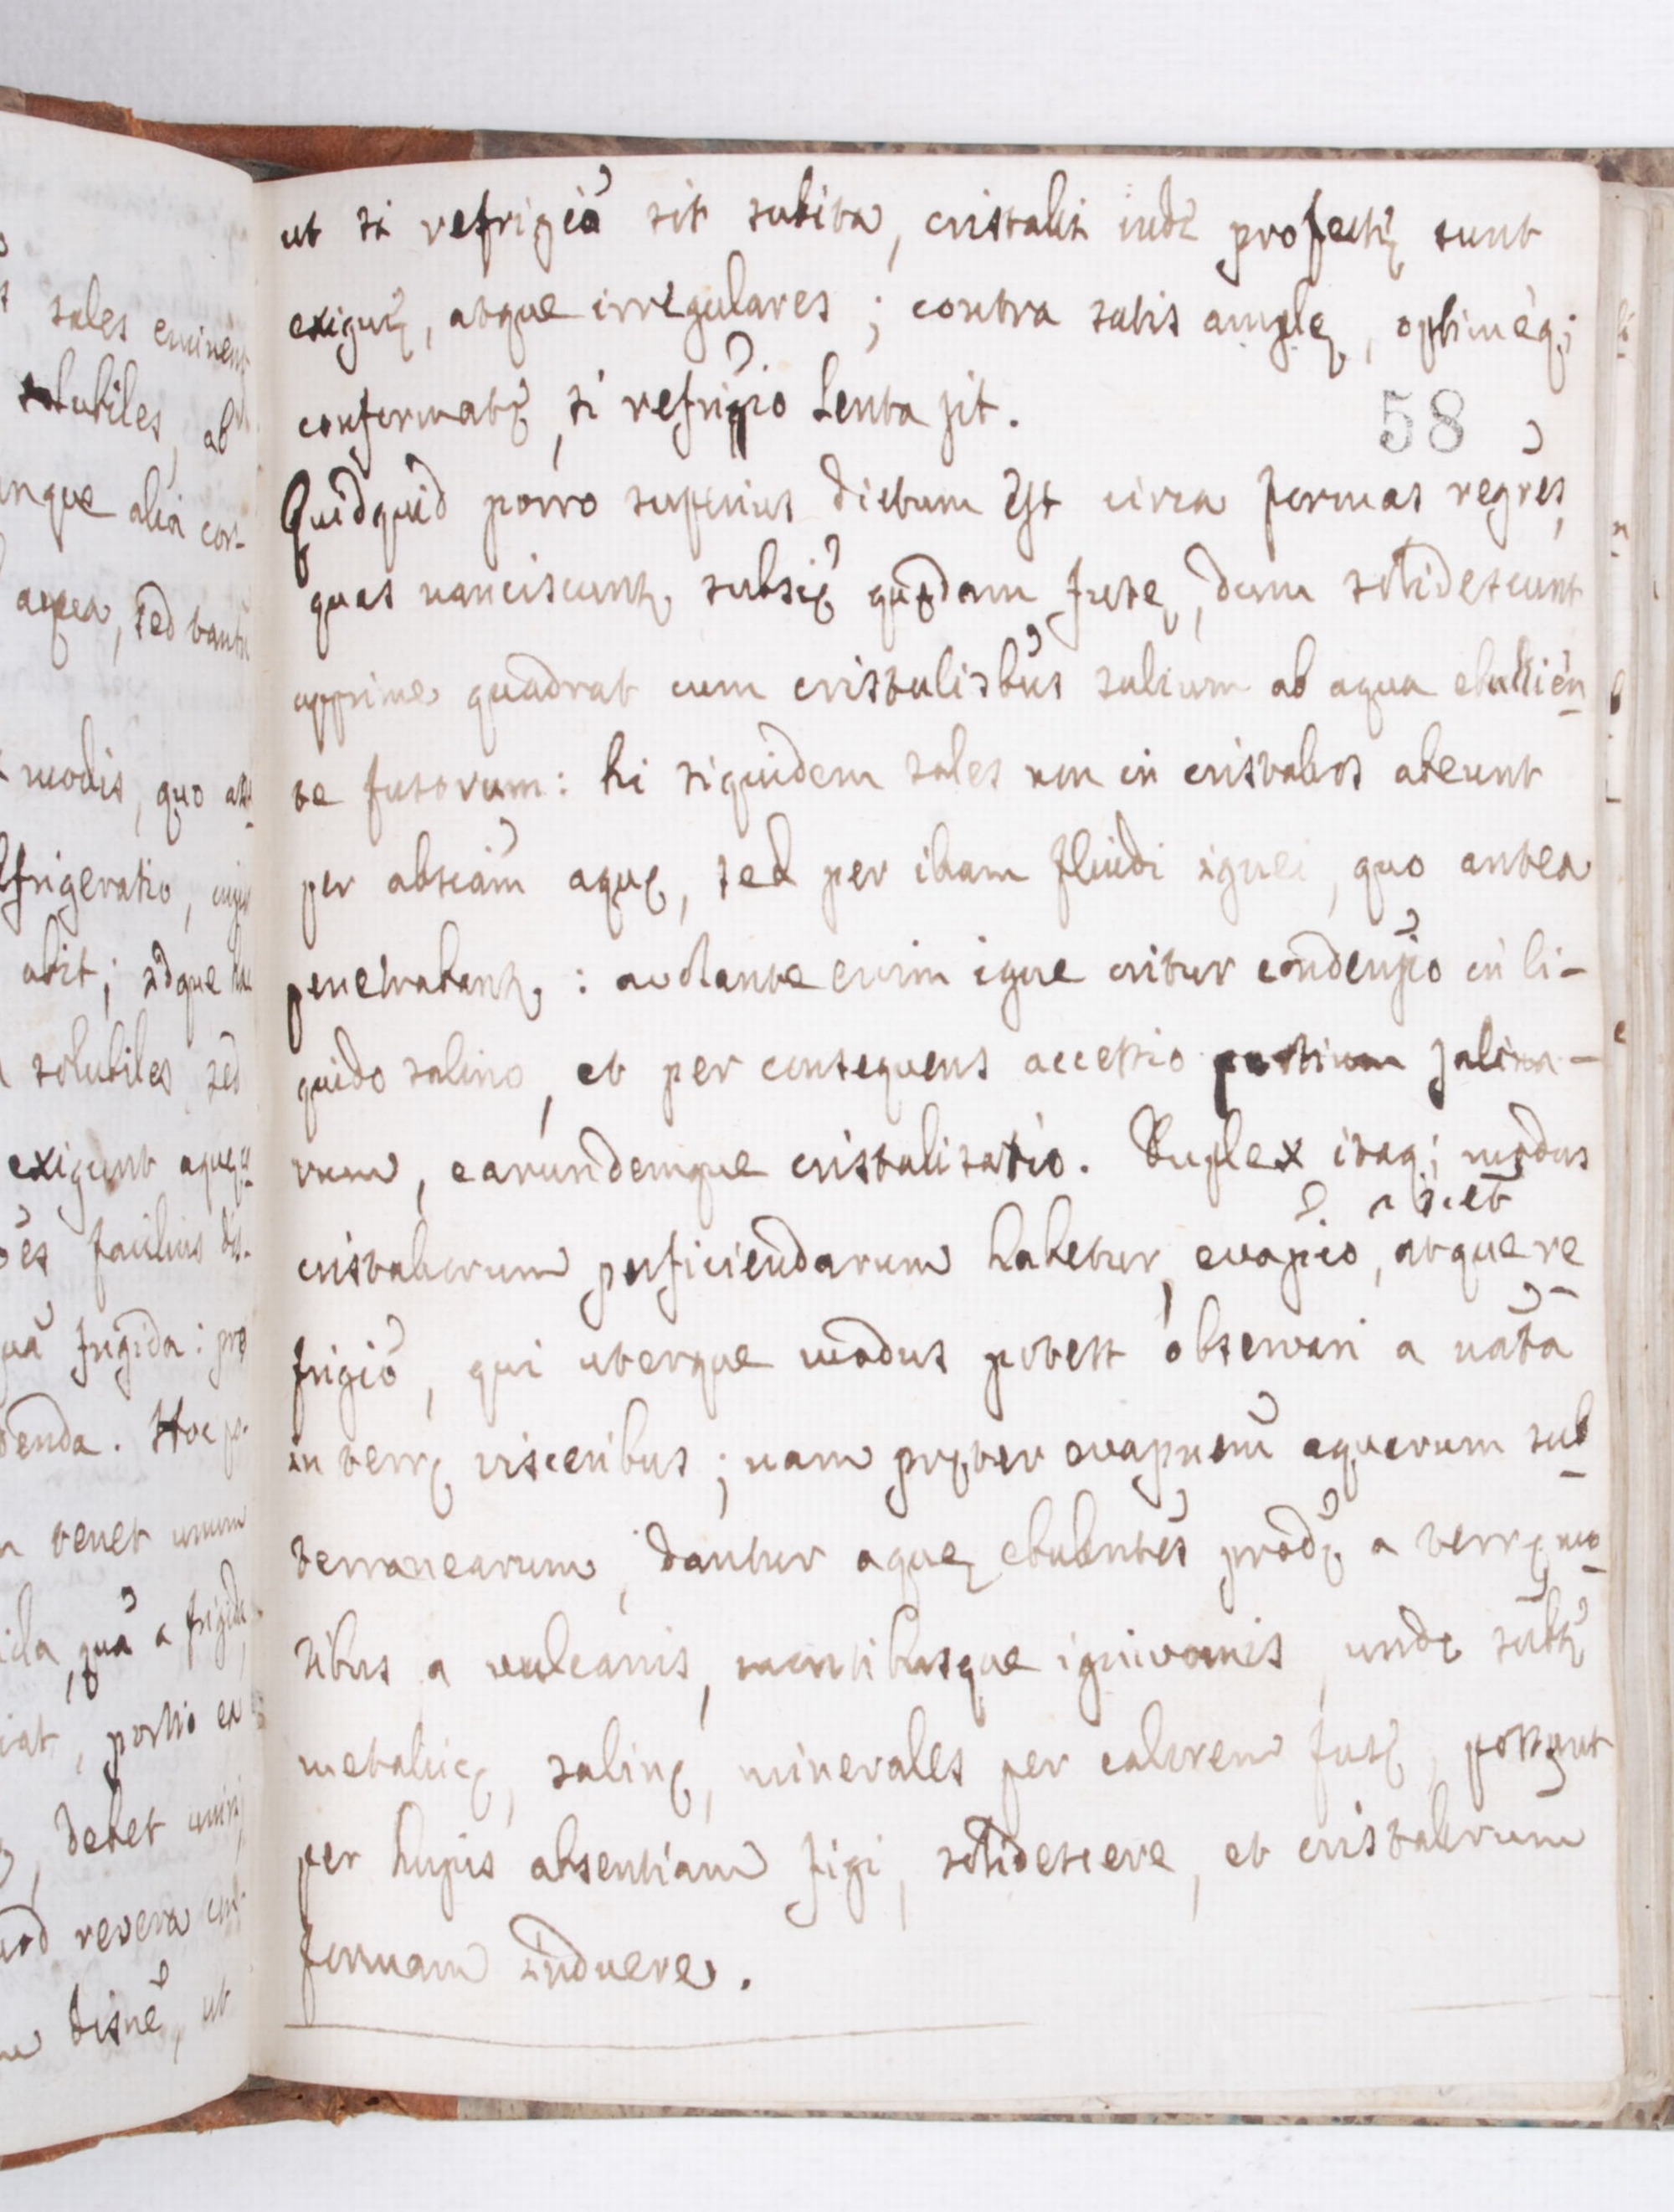 ut si refrigió sit subita, cristali indè profectę sunt
exiguę, atque irregulares ; contra satis amplę, optimèq;
conformatę, si refrigió lenta sit.
58
Quidquid porro superius dictum est circa formas regrés,
quas nanciscuntꝛ subsię quędam fusę, dum solidescunt
apprime quadrat cum cristalisbús salium ab aqua ebullien
te fusorum: hi siquidem sales non in cristalos abeunt
per absiám aquę, sed per ibam fluidi ignei, quo antea
penetrabantꝛ : auolante enim igne oritur condensio in li-
quido salino, et per consequens accessio partium salina-
rum, earundemque cristalisatio. Duplex itaq; modus
scet
cristalorum perficiendarum habetur, evapió, atque re
frigió, qui uterque modus potest observari a natá
in terrę visceribus ; nam pręter evapnem aquarum sub
terranearum, dantur aquę ebulentés prodę a terrę mo
tibus a vulcanis, montibusque ignivomis, undę subtę
metalicę, salinę, minerales per calorem fusę, possunt
per hujus absentiam figi, solidescere, et cristalorum
formam induere.
sales
solubiles, ab
alia cor-
aquea, sed
modis, quo
frigeratio,
abit; idque
solubiles sed
exigunt
facilius dis-
frigida: pro
Hoc
tenet unum
quá a
portio ex
debet
revera
ut